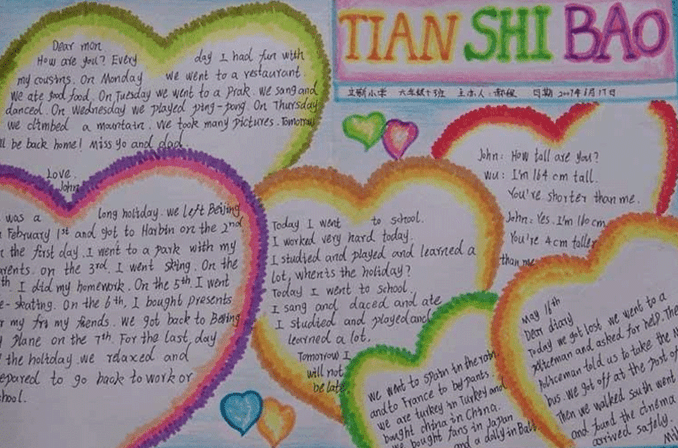 TIAN SHI BAO
Dear mom
How are you? Every day I had fun with
my cousins. On Monday we went to a restaurant.
We ate good food. On Tuesday we went to a prak. We sang and
danced. On Wednesday we played ping-pong. On Thursday
we climbed a mountain. We took many pictures. Tomorrow
ll be back home! Miss yo and dad.
Love.
John
was a long holiday. we left Beijing
February 1st and got to Harbin on the 2nd
the first day. I went to a park with my
arents. on the 3rd I went sking. On the
th I did my homework. On the 5th I went
e-skating. On the 6th, I bought presents
r my fri my friends. we got back to Beijing
plane on the 7th. For the last day
the holtday we rdaxed and
epared to go back to work or
chool.
Today I went to school.
I worked very hard today.
I studied and played and learned a
lot, when'ts the holiday?
Today I went to school
I sang and daced and ate
I studied and played and
learned a lot.
Tomorrow I
will not
be late
John: How tall are you?
wu: I'm 164 cm tall.
You're shorter than me.
John: Yes. I'm 160 cm
You're 4 cm taller
than me
We went to Spain in the rain
and to France to by pants
we are turkey in Turkey and
bught china in China.
We bought fans in Japan
and a dolly in Bali
May 16th
Dear diary
Today we got lost. we went to a
policeman and asked for help. The
policeman told us to take the
bus. we got off at the post of
Then we walked south went
and found the cinema
arrived safely.